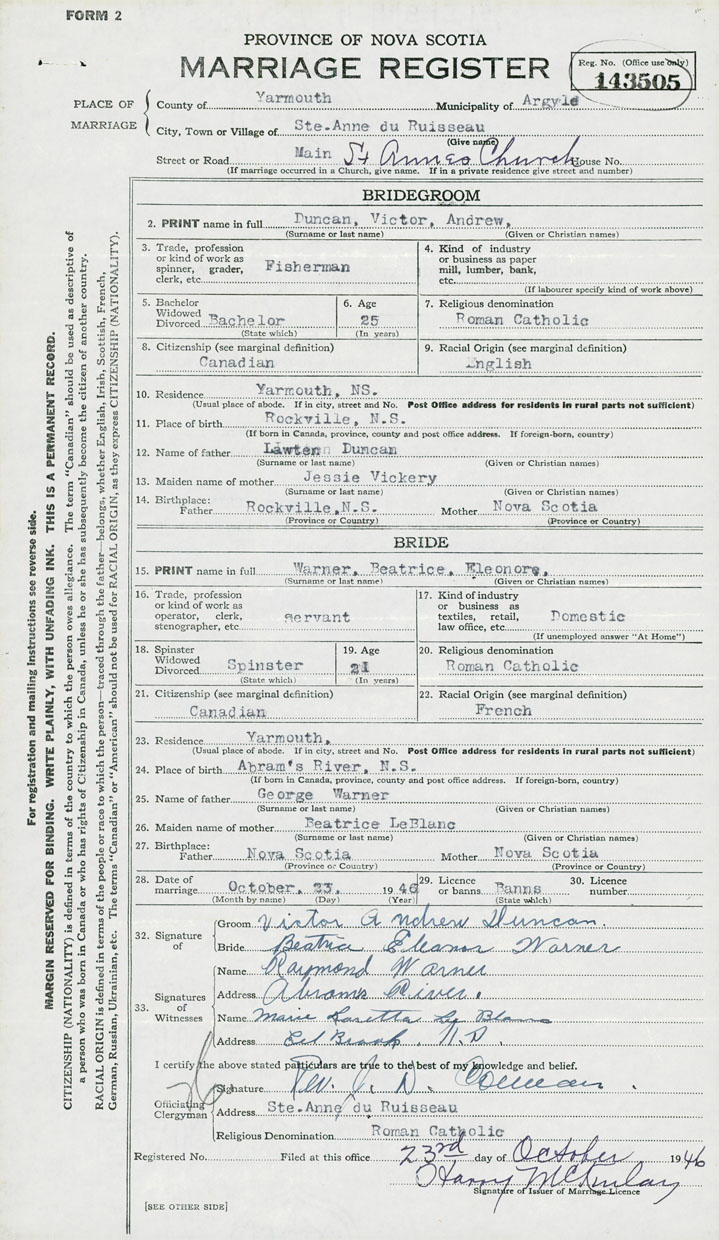 FORM 2
PROVINCE OF NOVA SCOTIA
MARRIAGE REGISTER
Reg. No. (Office use only)
143505
PLACE OF MARRIAGE
County of Yarmouth Municipality of Argyle
City, Town or Village of Ste.Anne du Ruisseau
(Give name)
Street or Road Main St Annes Church House No.
(If marriage occurred in a Church, give name. If in a private residence give street and number)
BRIDEGROOM
2. PRINT name in full Duncan, Victor, Andrew,
(Surname or last name) (Given or Christian names)
3. Trade, profession or kind of work as spinner, grader, clerk, etc. Fisherman
4. Kind of industry or business as paper mill, lumber, bank, etc.
(If labourer specify kind of work above)
5. Bachelor Widowed Divorced Bachelor
(State which)
6. Age 25
(In years)
7. Religious denomination
Roman Catholic
8. Citizenship (see marginal definition)
Canadian
9. Racial Origin (see marginal definition)
English
10. Residence Yarmouth, NS.
(Usual place of abode. If in city, street and No. Post Office address for residents in rural parts not sufficient)
11. Place of birth Rockville, N.S.
(If born in Canada, province, county and post office address. If foreign-born, country)
12. Name of father Lawten Duncan
(Surname or last name) (Given or Christian names)
13. Maiden name of mother Jessie Vickery
(Surname or last name) (Given or Christian names)
14. Birthplace:
Father Rockville,N.S. Mother Nova Scotia
(Province or Country) (Province or Country)
BRIDE
15. PRINT name in full Warner, Beatrice, Eleonore,
(Surname or last name) (Given or Christian names)
16. Trade, profession or kind of work as operator, clerk, stenographer, etc. servant
17. Kind of industry or business as textiles, retail, law office, etc. Domestic
(If unemployed answer "At Home")
18. Spinster Widowed Divorced Spinster
(State which)
19. Age 21
(In years)
20. Religious denomination
Roman Catholic
21. Citizenship (see marginal definition)
Canadian
22. Racial Origin (see marginal definition)
French
23. Residence Yarmouth,
(Usual place of abode. If in city, street and No. Post Office address for residents in rural parts not sufficient)
24. Place of birth Abram's River, N.S.
(If born in Canada, province, county and post office address. If foreign-born, country)
25. Name of father George Warner
(Surname or last name) (Given or Christian names)
26. Maiden name of mother Beatrice LeBlanc
(Surname or last name) (Given or Christian names)
27. Birthplace:
Father Nova Scotia Mother Nova Scotia
(Province or Country) (Province or Country)
28. Date of marriage October, 23, 1946
(Month by name) (Day) (Year)
29. Licence or banns Banns
(State which)
30. Licence number
32. Signature of
Groom Victor Andrew Duncan.
Bride Beatrice Eleanor Warner
33. Signatures of Witnesses
Name Raymond Warner
Address Abrams River.
Name Marie Loretta Le Blanc
Address Eel Brook, N.S.
I certify the above stated particulars are true to the best of my knowledge and belief.
Officiating Clergyman
Signature Rev. J. D. Comeau.
Address Ste.Anne du Ruisseau
Religious Denomination Roman Catholic
Registered No. Filed at this office 23rd day of October 1946
Harry
Signature of Issuer of Marriage Licence
[SEE OTHER SIDE]
For registration and mailing instructions see reverse side.
MARGIN RESERVED FOR BINDING. WRITE PLAINLY, WITH UNFADING INK. THIS IS A PERMANENT RECORD.
CITIZENSHIP (NATIONALITY) is defined in terms of the country to which the person owes allegiance. The term "Canadian" should be used as descriptive of
a person who was born in Canada or who has rights of Citizenship in Canada, unless he or she has subsequently become the citizen of another country.
RACIAL ORIGIN is defined in terms of the people or race to which the person—traced through the father—belongs, whether English, Irish, Scottish, French,
German, Russian, Ukrainian, etc. The terms "Canadian" or "American" should not be used for RACIAL ORIGIN, as they express CITIZENSHIP (NATIONALITY).